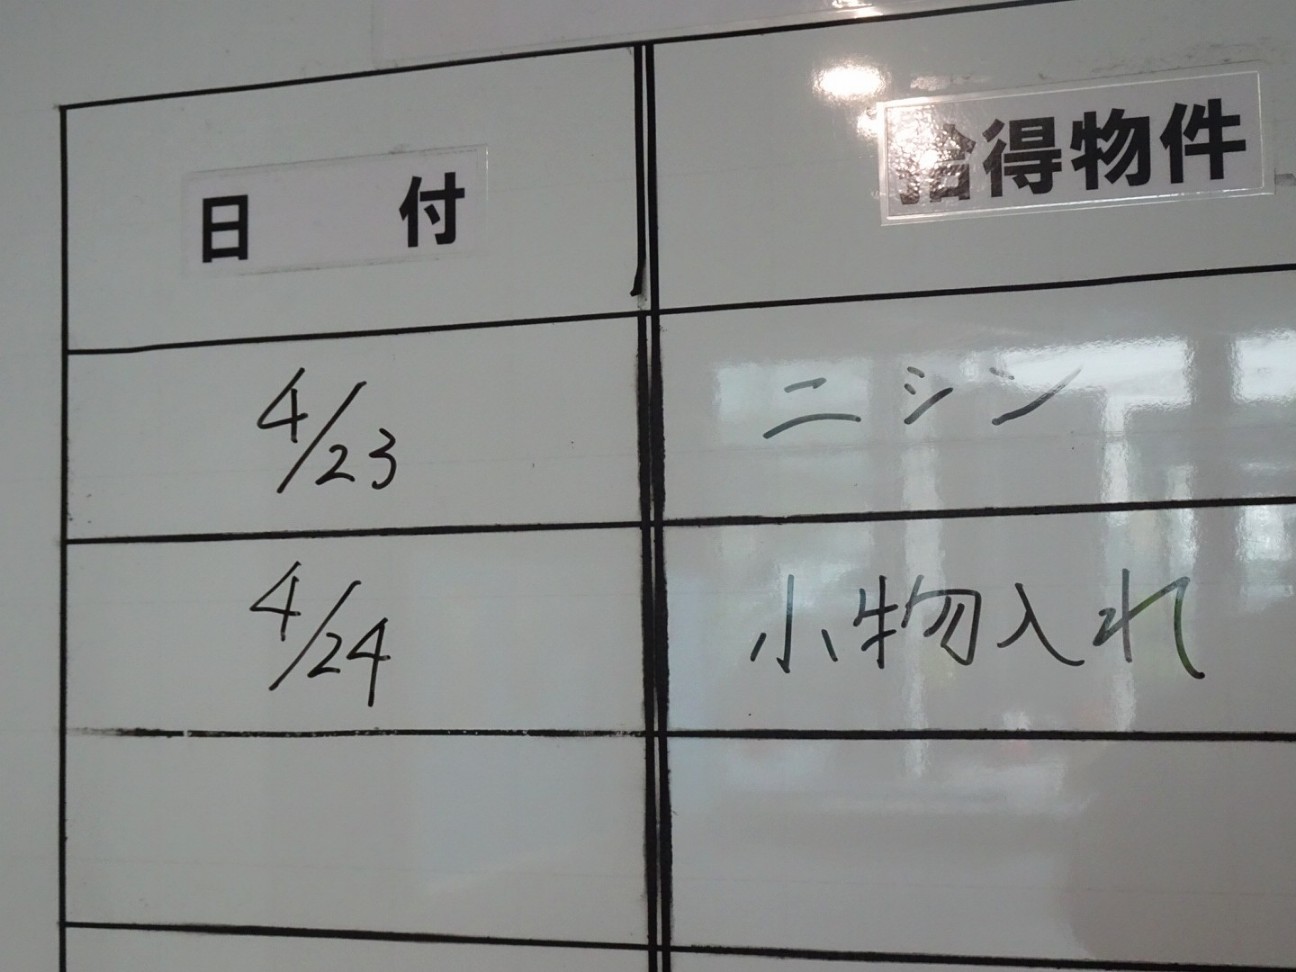 日付 拾得物件
4/23 ニシン
4/24 小物入れ